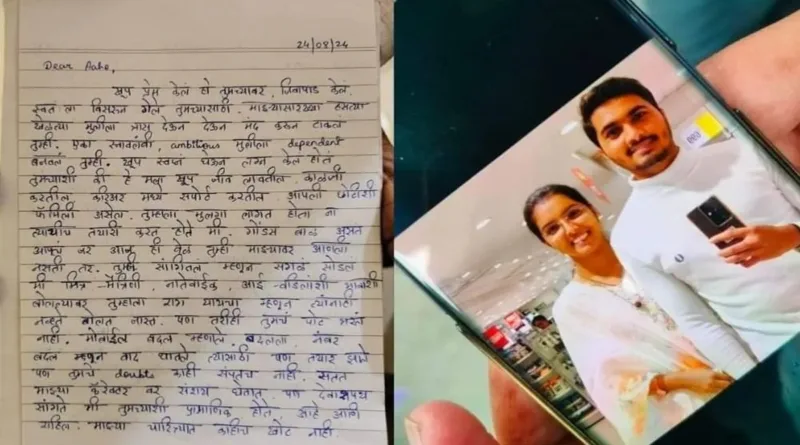 24/08/24
Dear Aaho,
खूप प्रेम केलं हो तुमच्यावर, जिवापाड केलं.
स्वतःला विसरून गेले तुमच्यासाठी. माझ्यासारख्या हसत्या
खेळत्या मुलीला त्रास देऊन देऊन मंद करून टाकलं
तुम्ही. एका स्वावलंबी, ambitious मुलीला dependent
बनवलं तुम्ही. खूप स्वप्नं घेऊन लग्न केलं होतं
तुमच्याशी की हे मला खूप जीव लावतील काळजी
करतील करिअर मध्ये सपोर्ट करतील. आपली छोटीशी
फॅमिली असेल. तुम्हाला मुलगा लागत होता ना
त्याचीच तयारी करत होते मी. गोंडस बाळ असतं
आपलं जर आज ही वेळ तुम्ही माझ्यावर आणली
नसती तर. तुम्ही सांगितलं म्हणून सगळं सोडलं
मी मित्र मैत्रिणी, नातेवाईक, आई-वडिलांशी भावाशी
बोलल्यावर तुम्हाला राग यायचा म्हणून त्यांनाही
नव्हते बोलत जास्त. पण तरीही तुमचं पोट भरलं
नाही. मोबाईल बदल म्हणाले बदलला, नंबर
बदल म्हणून वाद घातले त्यासाठी पण तयार झाले
पण तुमचे doubts काही संपतच नाही. सतत
माझ्या कॅरेक्टर वर संशय घेतात. पण देवाशपथ
सांगते मी तुमच्याशी प्रामाणिक होते, आहे आणि
राहिल. माझ्या चारित्र्यात काहीच खोट नाही.